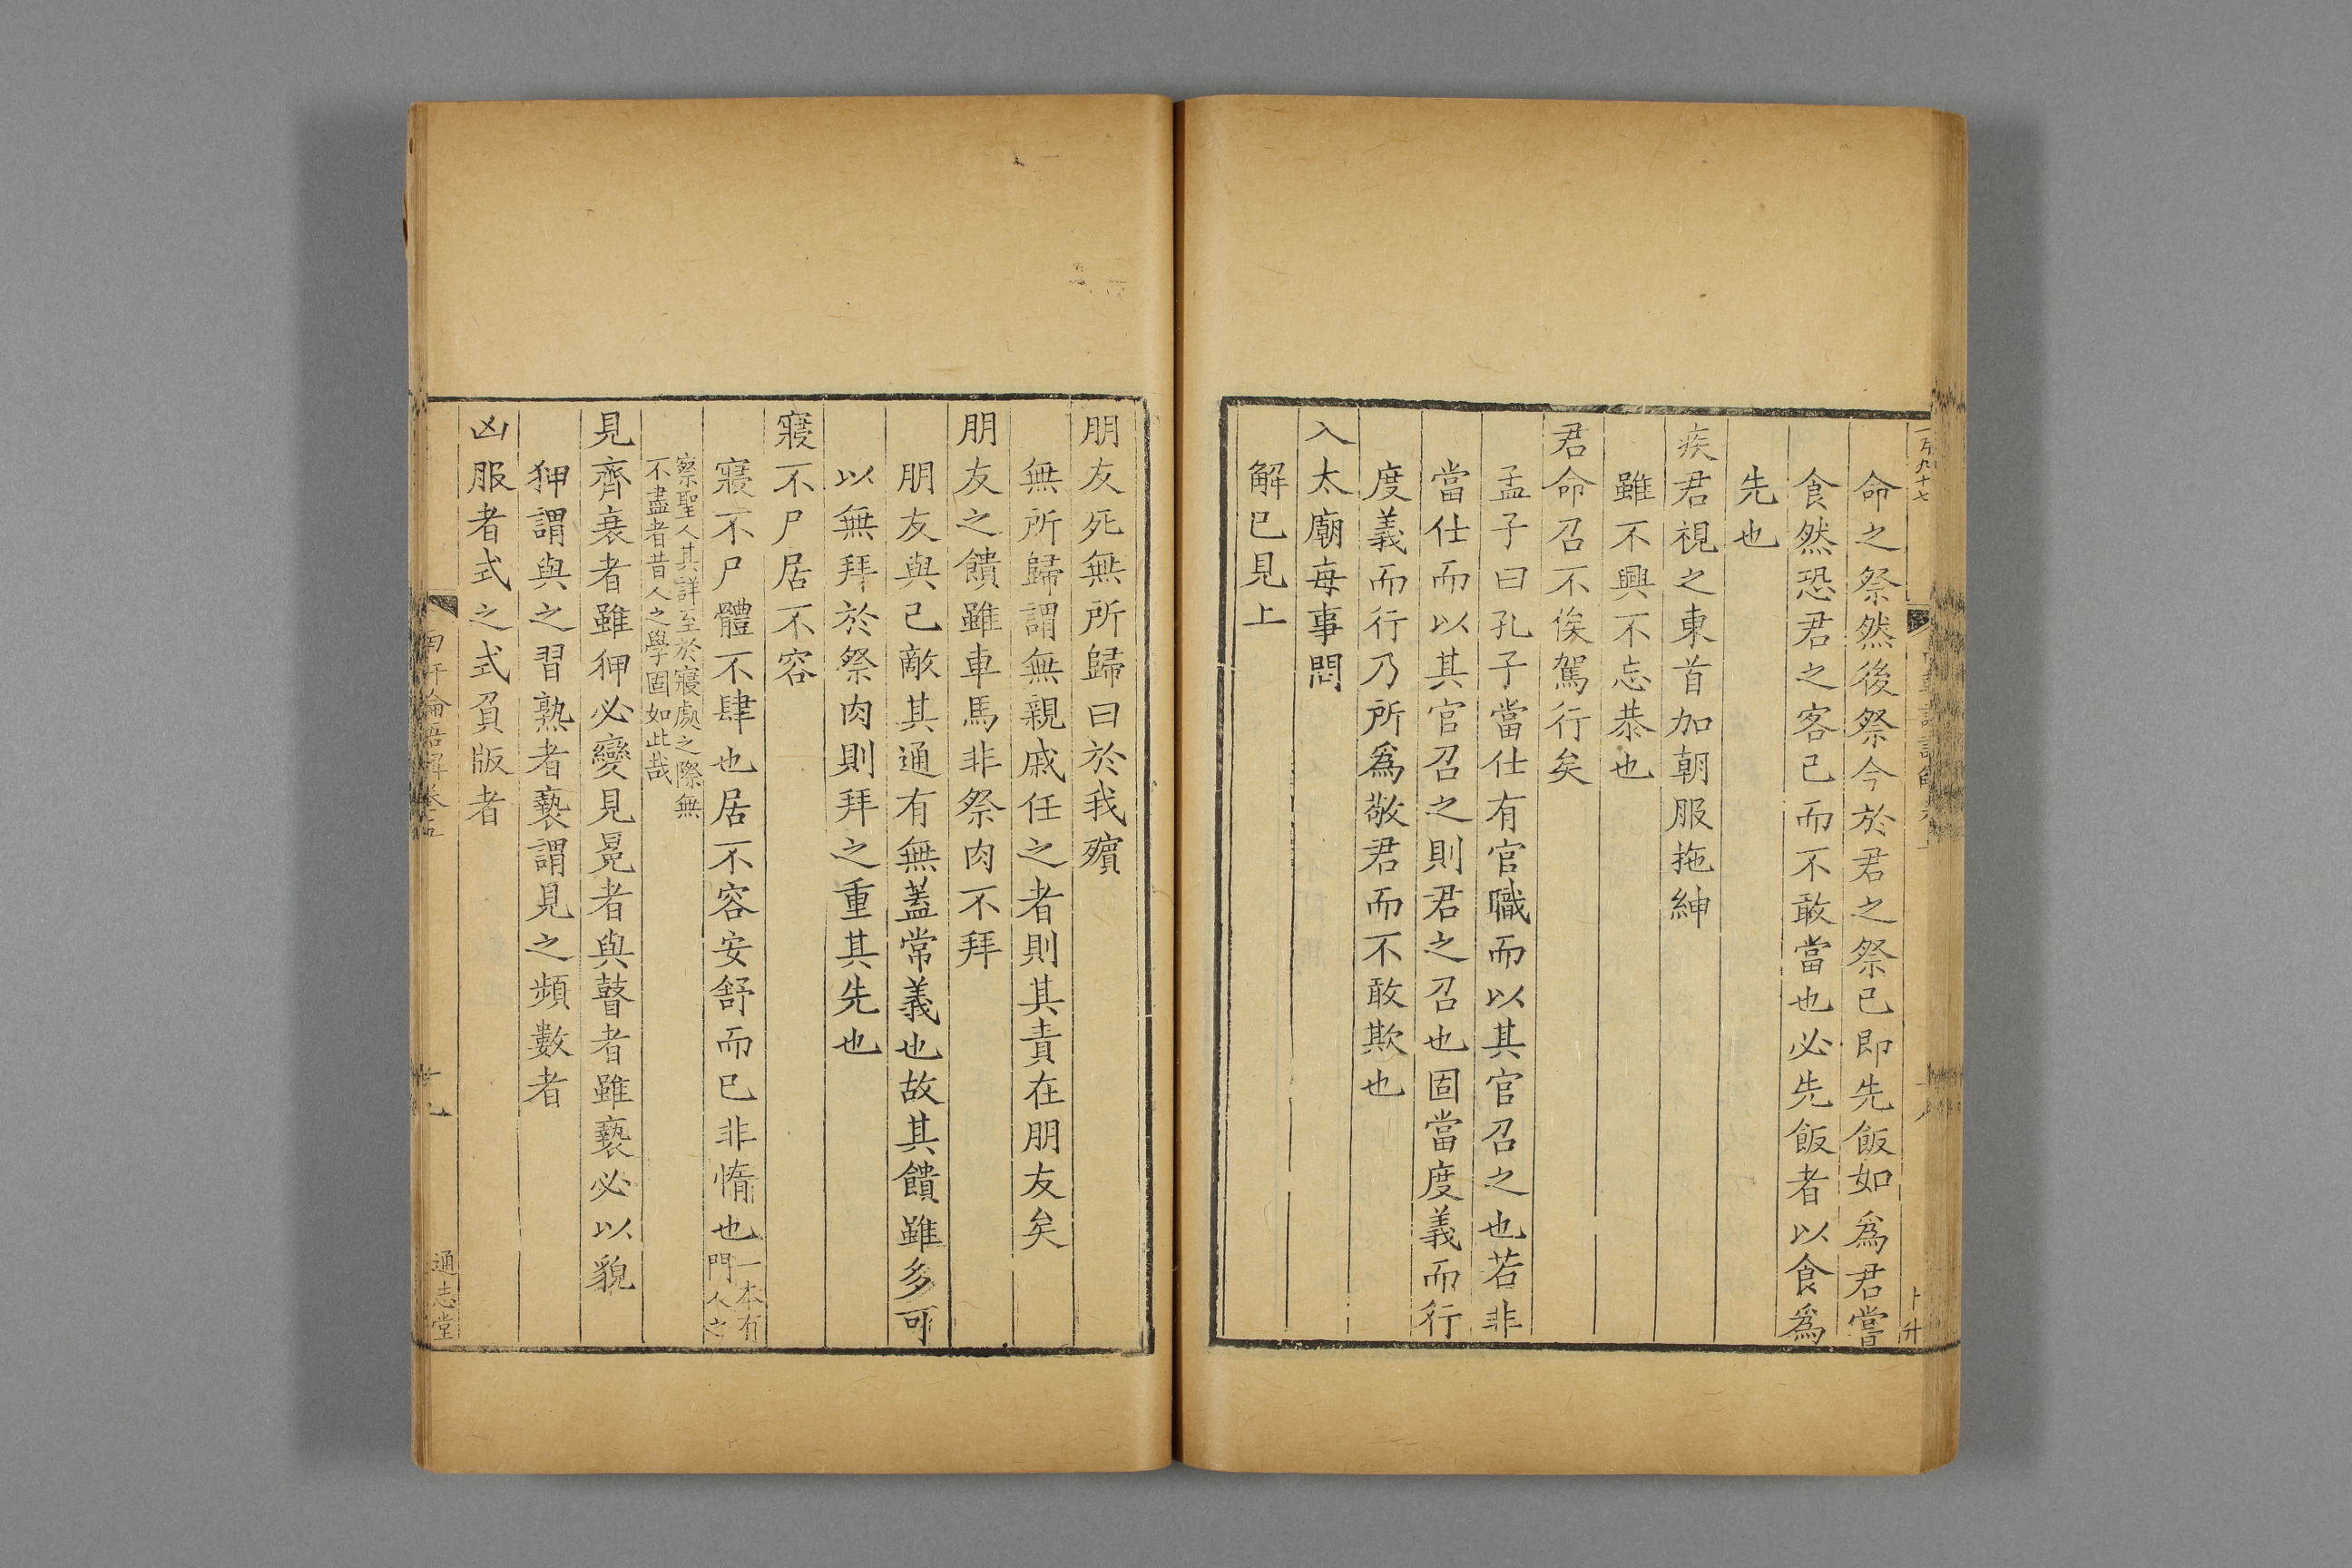 一百九十七
命之祭然後祭今於君之祭已即先飯如爲君嘗
食然恐君之客己而不敢當也必先飯者以食爲
先也
疾君視之東首加朝服拖紳
雖不興不忘恭也
君命召不俟駕行矣
孟子曰孔子當仕有官職而以其官召之也若非
當仕而以其官召之則君之召也固當度義而行
度義而行乃所爲敬君而不敢欺也
入太廟每事問
解已見上
朋友死無所歸曰於我殯
無所歸謂無親戚任之者則其責在朋友矣
朋友之饋雖車馬非祭肉不拜
朋友與己敵其通有無蓋常義也故其饋雖多可
以無拜於祭肉則拜之重其先也
寢不尸居不容
寢不尸體不肆也居不容安舒而已非惰也一本有門人之
察聖人其詳至於寢處之際無
不盡者昔人之學固如此哉
見齊衰者雖狎必變見冕者與瞽者雖褻必以貌
狎謂與之習熟者褻謂見之頻數者
凶服者式之式負版者
通志堂